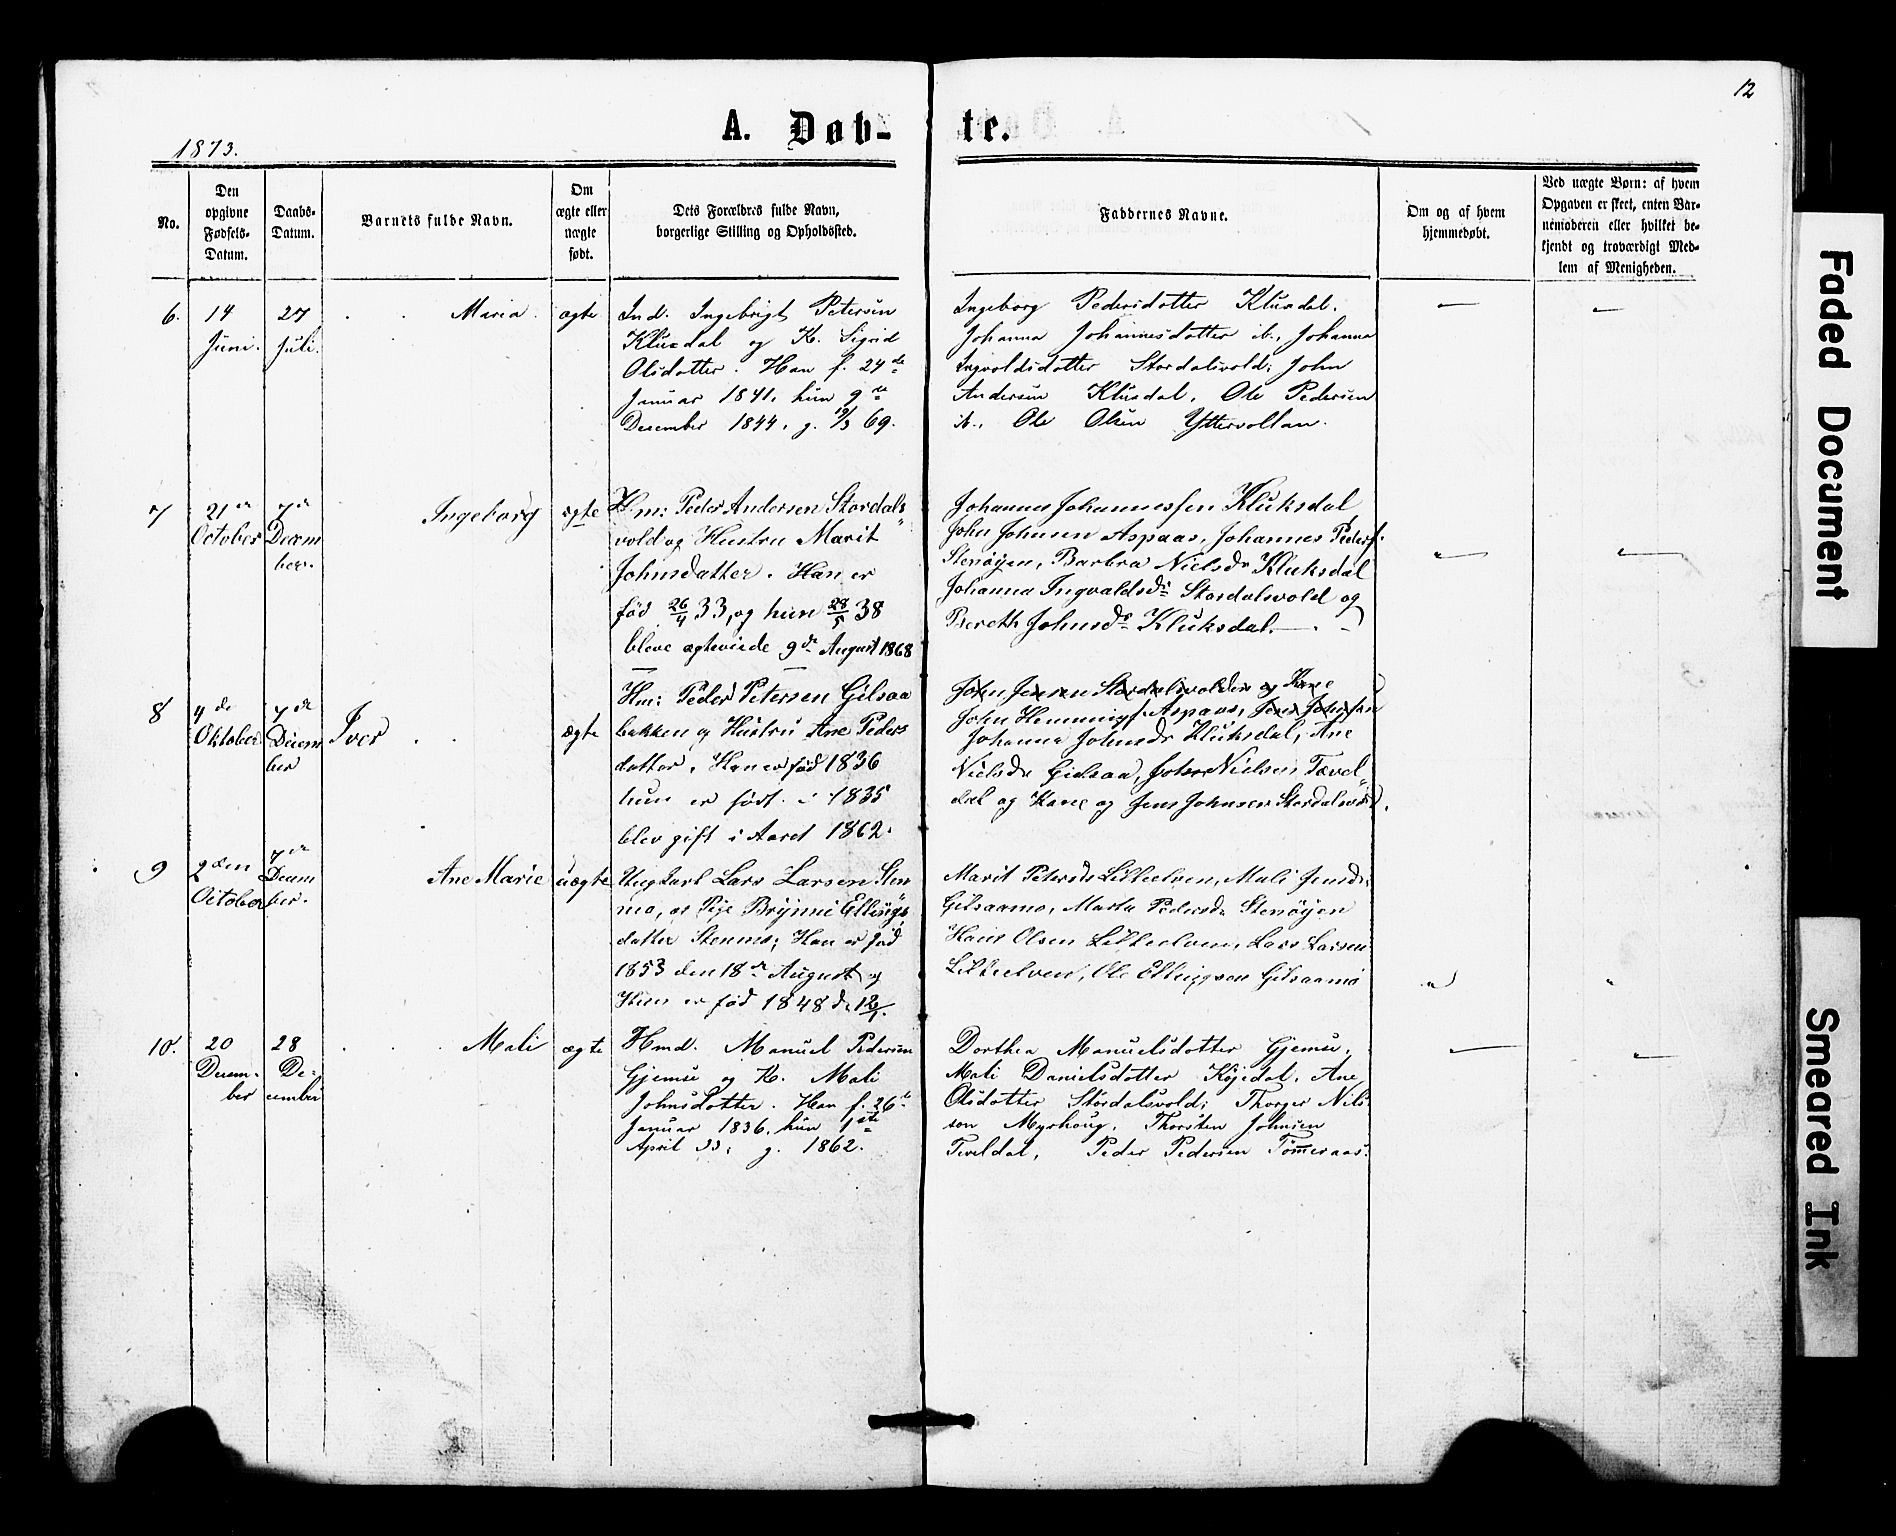 12
1873.
A. Døb- te.
No.
Den
opgivne
Fødsels-
Datum.
Daabs-
Datum.
Barnets fulde Navn.
Om
ægte eller
uægte
født.
Dets Forældres fulde Navn,
borgerlige Stilling og Opholdssted.
Faddernes Navne.
Om og af hvem
hjemmedøbt.
Ved uægte Børn: af hvem
Opgaven er skeet, enten Bar-
nemoderen eller hvilket be-
kjendt og troværdigt Med-
lem af Menigheden.
6.
14
Juni.
27
Juli.
Maria.
ægte
Ind. Ingebrigt Petersen
Klusdal og K. Sigrid
Olsdotter. Han f. 24de
Januar 1841, hun 9de
Desember 1844, g. 69.
Ingeborg Pedersdotter Klusdal.
Johanna Johannesdotter ib., Johanna
Ingvoldsdotter Stordalsvold; John
Andersen Klusdal, Ole Pedersen
ib., Ole Olsen Yttervollan.
7
21de
October
7de
Decem
ber.
Ingeborg
ægte
Hm: Peder Andersen Stordals
vold og Hustru Marit
Johnsdatter. Han er
fød 26/4 33, og hun 28/5 38
bleve ægteviede 9de August 1868
Johannes Johannessen Kluksdal
John Johnsen Aspaas, Johannes Peders.
Stenøyen, Barbra Nielsdr Kluksdal
Johanna Ingvaldsdr Stordalsvold og
Bereth Johnsdr Kluksdal.
8
4de
Oktober
7de
Decem
ber
Iver
ægte
Hm: Peder Petersen Gilsaa
bakken og Hustru Ane Peders
datter, Han er fød 1836
hun er født i 1835
blev gift i Aaret 1862.
John Jensen Stordalsvolden og Kone
John Hemmings. Aspaas, Jens Johnsen
Johanna Johnsdr Kluksdal, Ane
Nielsdr Gilsaa, John Nielsen Tævel-
dal og Kone og Jens Johnsen Stordalsvold.
9
2den
October
7de
Decem
ber.
Ane Marie
uægte
Ungkarl Lars Larsen Sten
mo, og Pige Brynni Ellings
datter Stenmo; Han er fød
1853 den 18de August og
Hun er fød 1848 d. 12/1.
Marit Petersdr Lilleelven, Mali Jensdr
Gilsaamo, Marta Pedersdr Stenøyen
Hans Olsen Lilleelven, Lars Larsen
Lilleelven, Ole Ellingsen Gilsaamo
10.
20
Decem-
ber
28
De-
cember
Mali
ægte
Hmd. Manuel Pedersen
Gjemse og K. Mali
Johnsdotter. Han f. 26de
Januar 1836, hun 1ste
April 33; g. 1862.
Dorthea Manuelsdotter Gjemse,
Mali Danielsdotter Kojedal, Ane
Olsdotter Stordalsvold; Thorger Nils-
son Myrhoug, Thorsten Johnsen
Teveldal, Peder Pedersen Tømeraas.
Faded Document
Smeared Ink